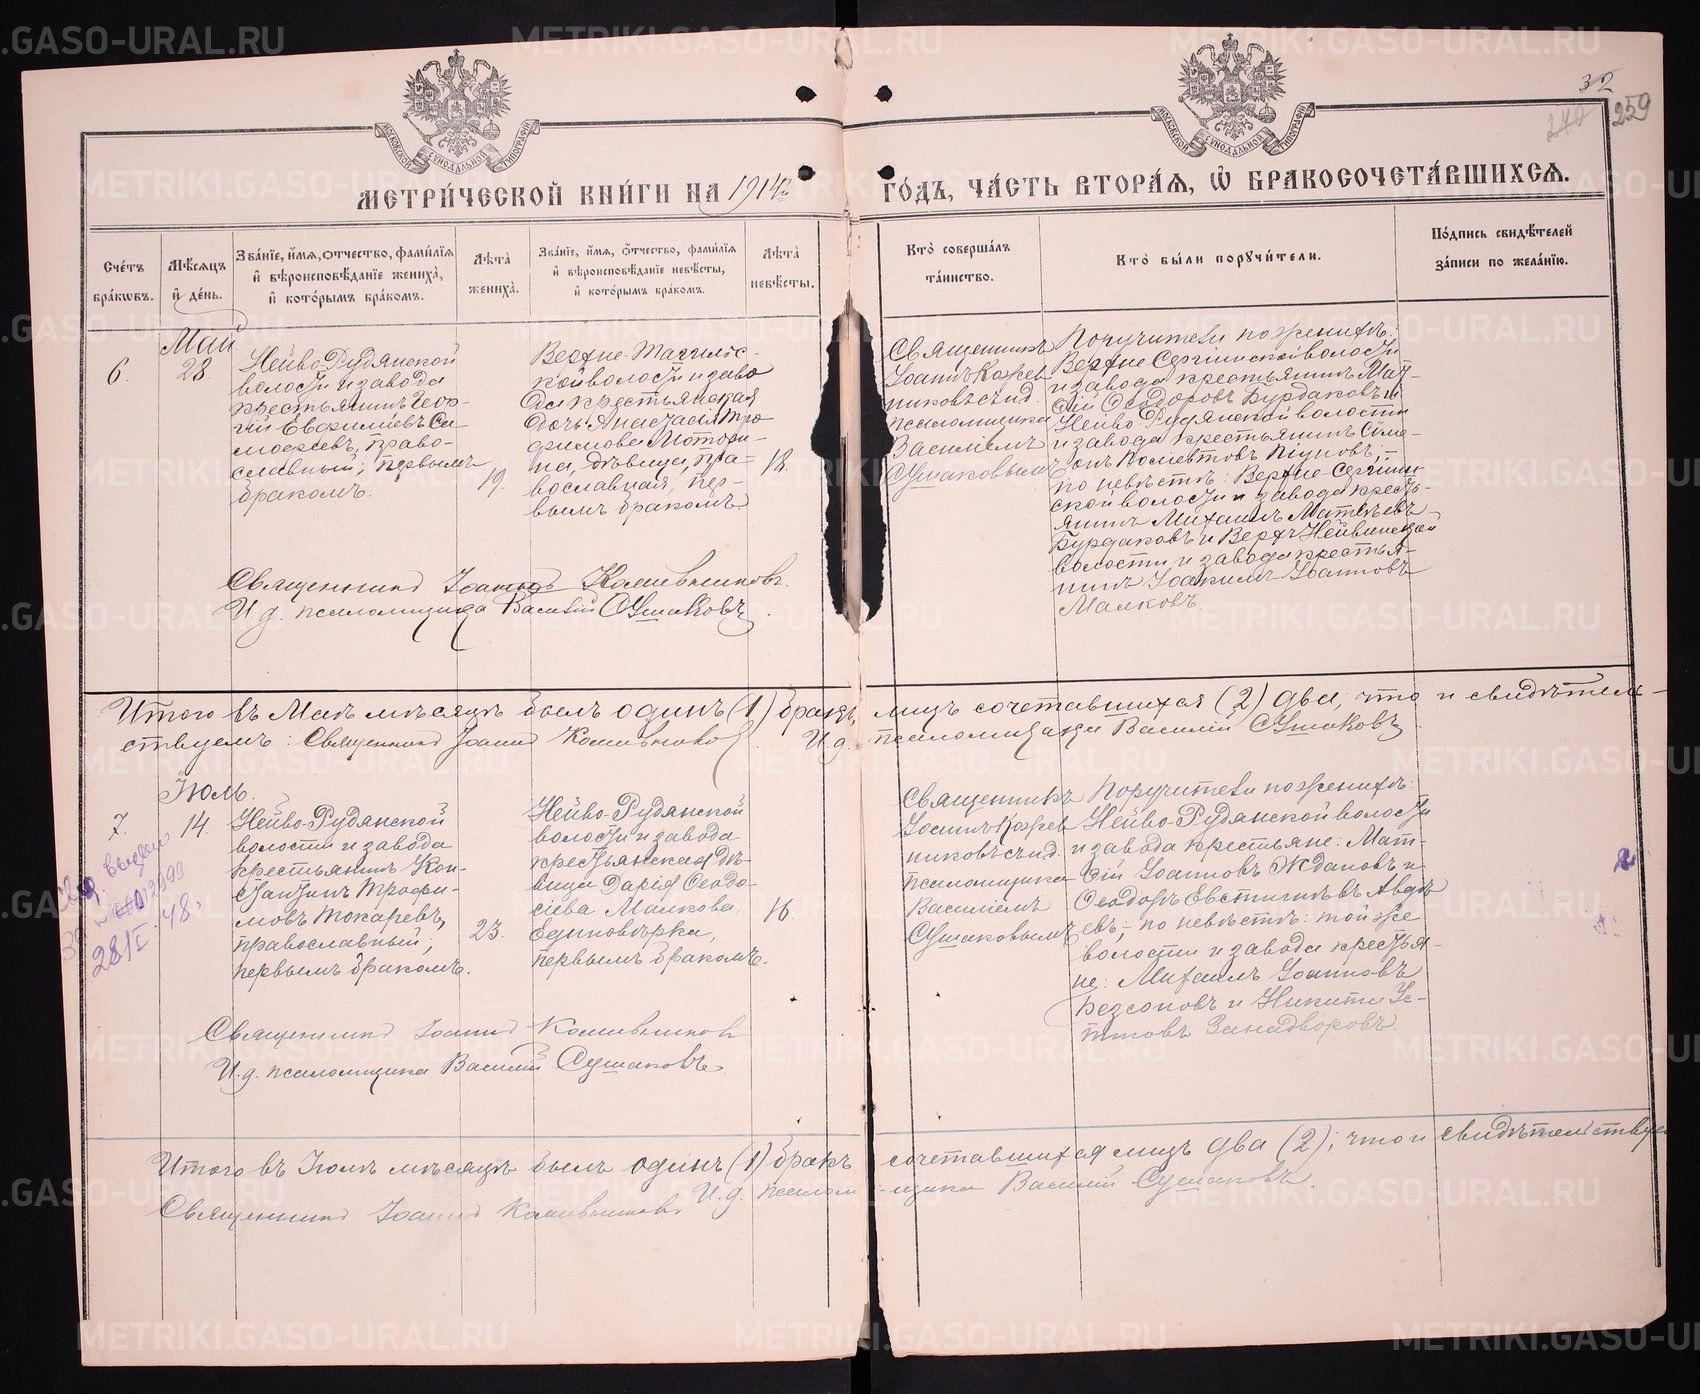 32
259
МЕТРИ́ЧЕСКОЙ КНИ́ГИ НА 1914й
ГО́ДЪ, ЧА́СТЬ ВТОРА́Я, Ѡ БРАКОСОЧЕТА́ВШИХСЯ.
МОСКОВСКОЙ СѴНОДАЛЬНОЙ ТИПОГРАФІИ
МОСКОВСКОЙ СѴНОДАЛЬНОЙ ТИПОГРАФІИ
Счётъ бра́кѡвъ.
Мѣ́сяцъ и҆ де́нь.
Зва́нїе, и҆́мя, о҆́тчество, фами́лїя и҆ вѣроисповѣ́данїе жениха̀, и҆ кото́рымъ бра́комъ.
Лѣта̀ жениха̀.
Зва́нїе, и҆́мя, о҆́тчество, фами́лїя и҆ вѣроисповѣ́данїе невѣ́сты, и҆ кото́рымъ бра́комъ.
Лѣта̀ невѣ́сты.
Кто̀ соверша́лъ та́инство.
Кто̀ бы́ли поручи́тели.
По́дпись свидѣ́телей за́писи по жела́нїю.
Май
6.
28
Нейво-Рудянской
волости и завода
крестьянинъ Геор-
гій Евфиміевъ Си-
моѳеевъ, право-
славный, первымъ
бракомъ.
19.
Верхне-Тагильс-
кой волости и заво
да крестьянская
дочь Анастасія Тро
фимова Матори-
на, дѣвица, пра-
вославная, пер-
вымъ бракомъ
18.
Священникъ
Іоаннъ
никовъ съ и.д.
псаломщика
Василіемъ
Сушаковымъ
Поручители по женихѣ:
Верхне Сергинской волости
и завода крестьянинъ Мат-
ѳій Ѳеодоровъ Бурдаковъ и
Нейво-Рудянской волости
и завода крестьянинъ Симе-
онъ
по невѣстѣ: Верхне-Сергин-
ской волости и завода кресть-
янинъ Михаилъ Матвѣевъ
Бурдаковъ и Верхъ Нейвинской
волости и завода крестья-
нинъ Іоакимъ Іоанновъ
Малковъ
Священникъ Іоаннъ
И.д. псаломщика Василій Сушаковъ.
Итого въ Маѣ мѣсяцѣ былъ одинъ (1) бракъ, лицъ сочетавшихся (2) два, что и свидѣтель-
ствуемъ: Священникъ Іоаннъ И.д. псаломщика Василій Сушаковъ
Іюль.
7.
14.
Нейво-Рудянской
волости и завода
крестьянинъ Кон-
стантинъ Трофи-
мовъ Токаревъ,
православный;
первымъ бракомъ.
23.
Нейво-Рудянской
волости и завода
крестьянская дѣ-
вица Дарія Ѳеодо-
сіева Малкова,
Единовѣрка,
первымъ бракомъ.
16
Священникъ
Іоаннъ
никовъ съ и.д.
псаломщика
Василіемъ
Сушаковымъ
Поручители по женихѣ:
Нейво-Рудянской волости
и завода крестьяне: Мат-
ѳій Іоанновъ Ждановъ и
Ѳеодоръ Евстигнѣевъ Авдѣ
евъ; по невѣстѣ: той же
волости и завода крестья-
не: Михаилъ Іоанновъ
Безсоновъ и Никита
Занадворовъ.
28/I 48.
Священникъ Іоаннъ
И.д. псаломщика Василій Сушаковъ.
Итого въ Іюлѣ мѣсяцѣ былъ одинъ (1) бракъ сочетавшихся лицъ два (2); что и свидѣтельствуе
Священникъ Іоаннъ И.д. псалом-щика Василій Сушаковъ.
METRIKI.GASO-URAL.RU